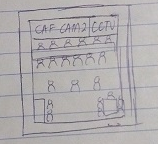 CAF CAM2 CCTV